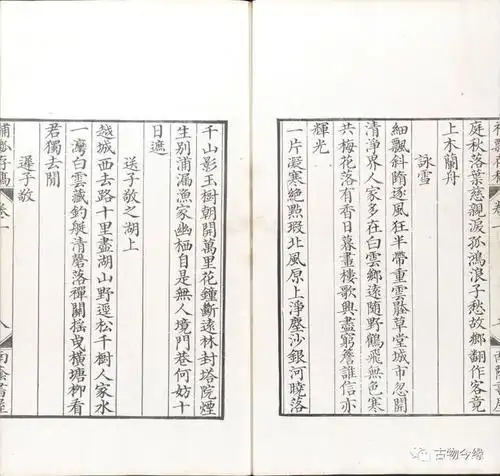 庭秋落葉慈親淚孤鴻浪子愁故鄉翻作客竟
上木蘭舟
詠雪
細飄斜墮逐風狂半帶重雲草堂城市忽開
清淨界人家多在白雲鄉遠隨野鶴飛無色寒
共梅花落有香日暮畫樓歌興盡窮簷誰信亦
輝光
一片凝寒絕點瑕北風原上淨塵沙銀河曉落
千山影玉樹朝開萬里花鐘斷遠林封塔院煙
生別浦漏漁家幽栖自是無人境門巷何妨十
日遮
送子敬之湖上
越城西去路十里盡湖山野逕松千樹人家水
一灣白雲藏釣艇清磬落禪關搖曳橫塘柳看
君獨去閒
遲子敬
卷一
八
古物今繪